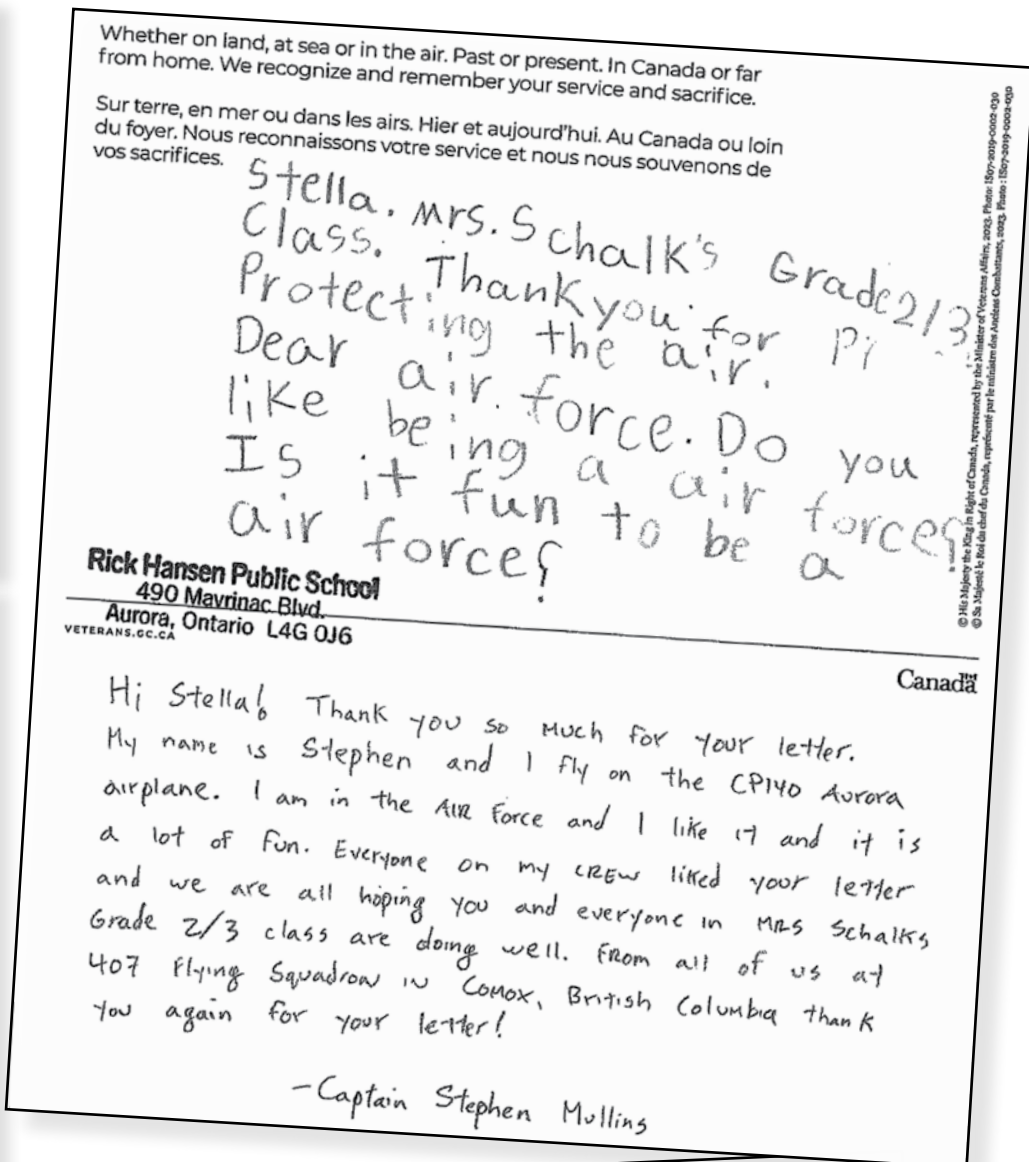 Whether on land, at sea or in the air. Past or present. In Canada or far
from home. We recognize and remember your service and sacrifice.
Sur terre, en mer ou dans les airs. Hier et aujourd'hui. Au Canada ou loin
du foyer. Nous reconnaissons votre service et nous nous souvenons de
vos sacrifices.
Stella. Mrs. Schalk's Grade 2/3
Class. Thank you for
Protecting the air.
Dear air. force. Do you
like being a air force?
Is it fun to be a
air force?
Rick Hansen Public School
490 Mavrinac Blvd.
Aurora, Ontario L4G 0J6
VETERANS.GC.CA
© His Majesty the King in Right of Canada, represented by the Minister of Veterans Affairs, 2023. Photo: IS07-2019-0002-030
© Sa Majesté le Roi du chef du Canada, représenté par le ministre des Anciens Combattants, 2023. Photo : IS07-2019-0002-030
Canada
Hi Stella! Thank you so much for your letter.
My name is Stephen and I fly on the CP140 Aurora
airplane. I am in the AIR Force and I like it and it is
a lot of fun. Everyone on my CREW liked your letter
and we are all hoping you and everyone in MRS Schalks
Grade 2/3 class are doing well. From all of us at
407 Flying Squadron in Comox, British Columbia thank
you again for your letter!
-Captain Stephen Mullins